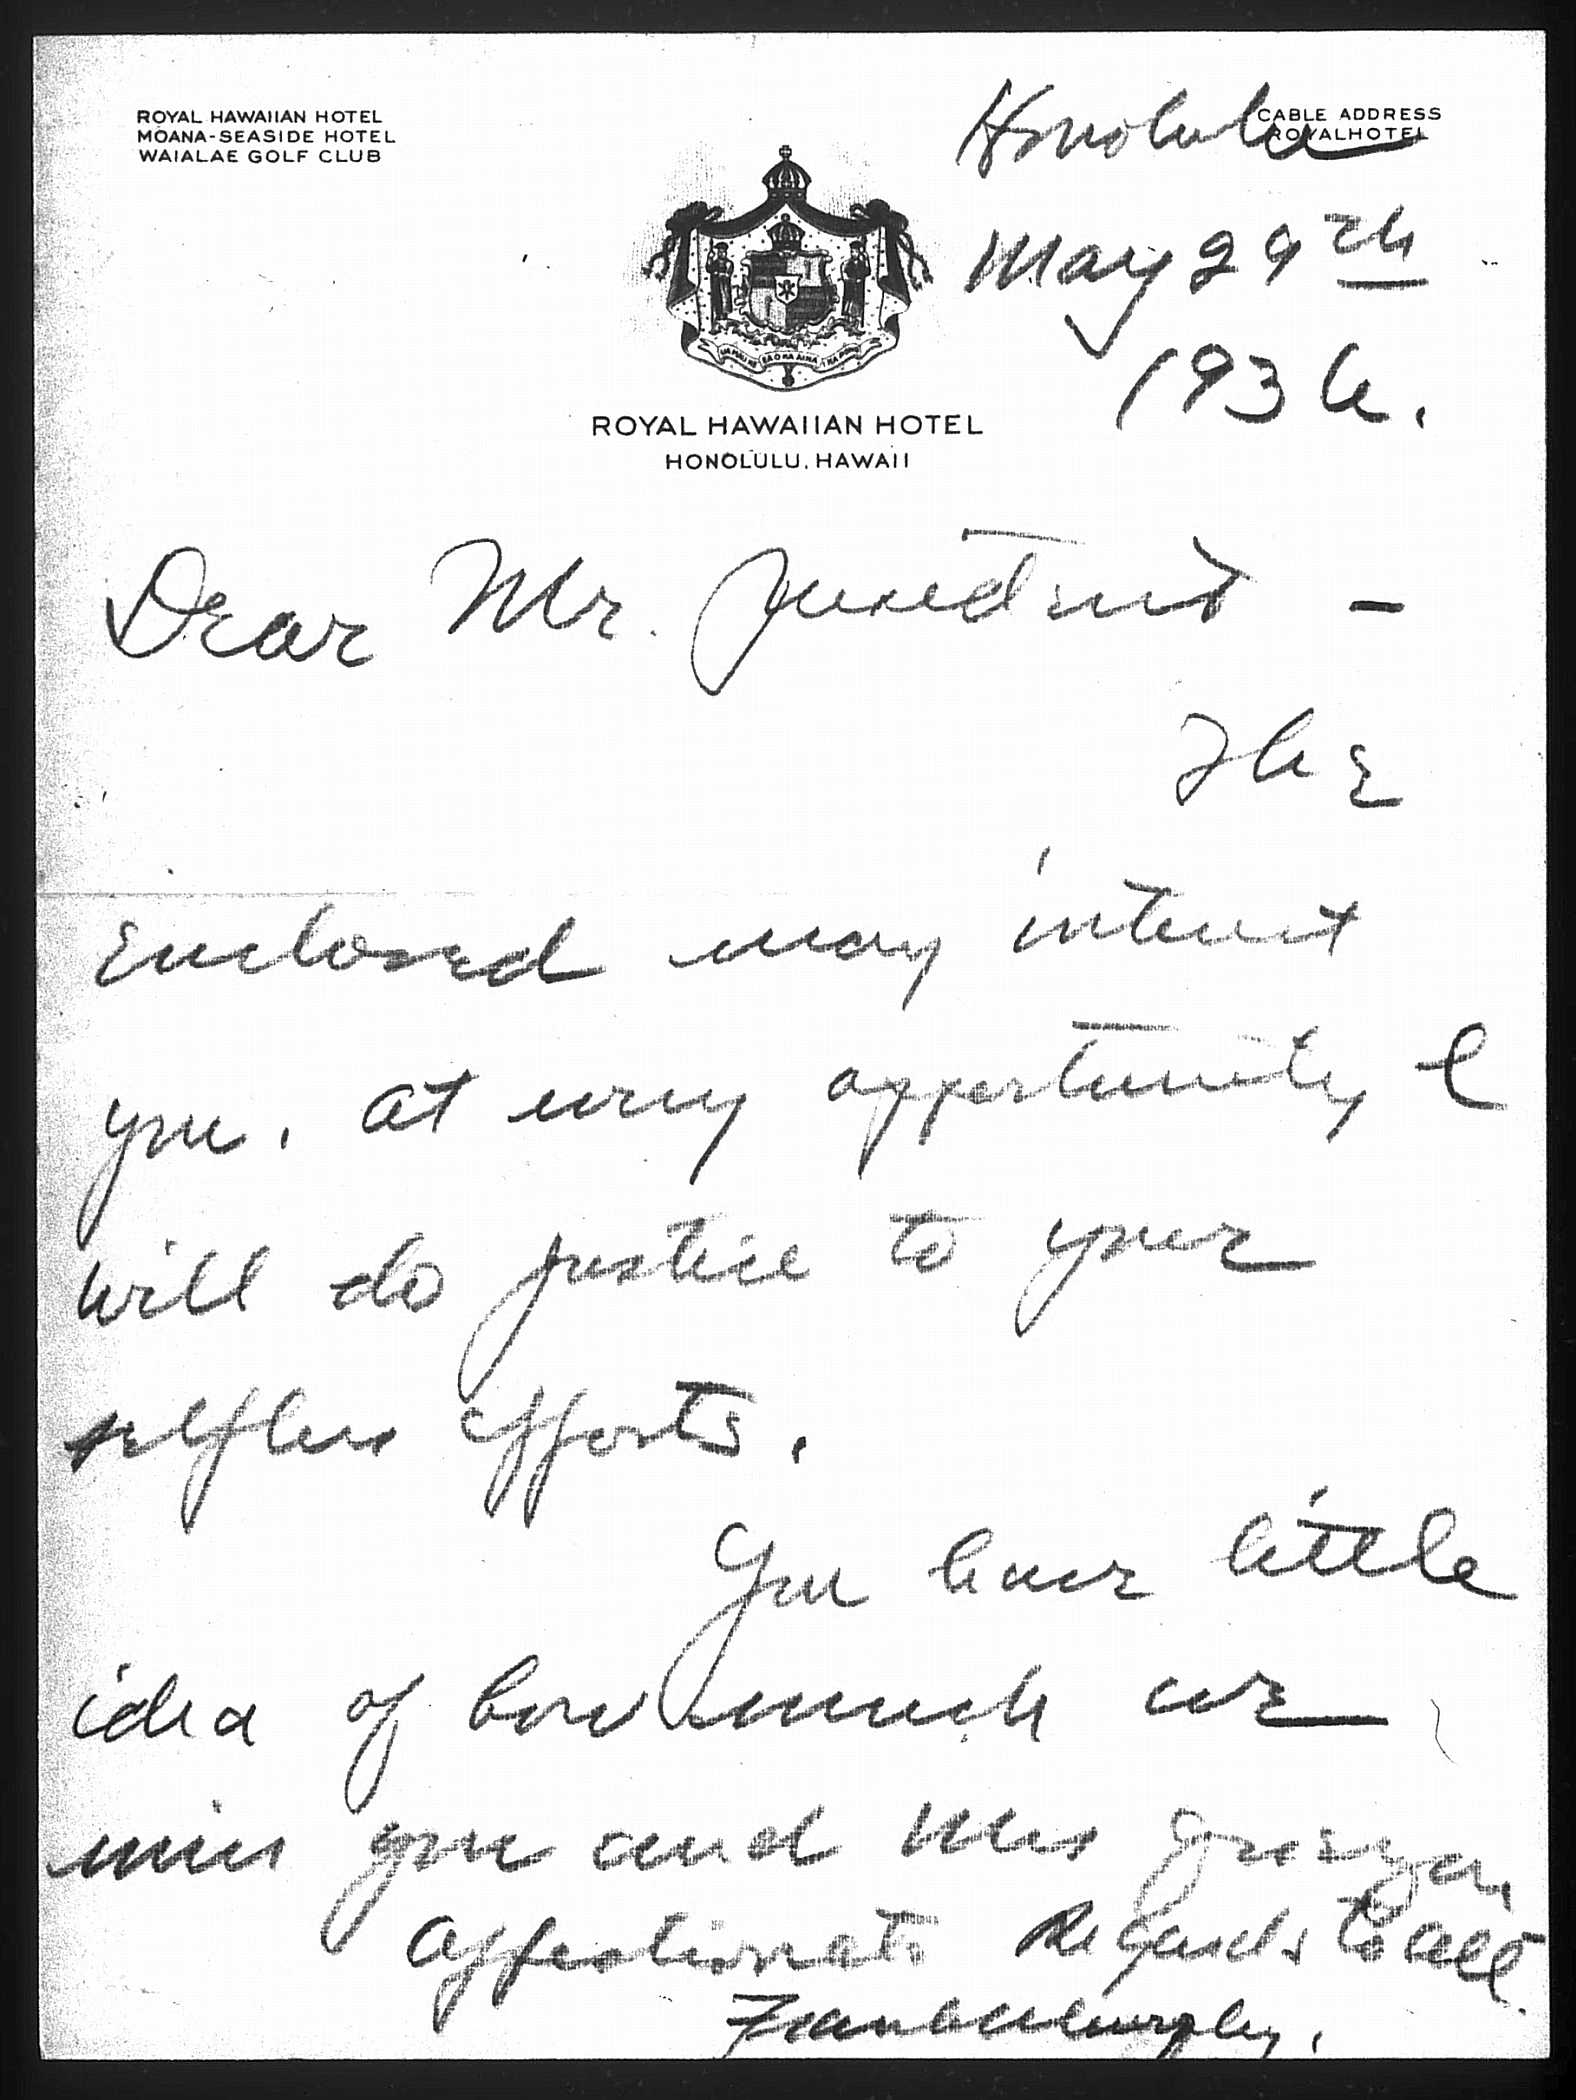 ROYAL HAWAIIAN HOTEL
MOANA-SEASIDE HOTEL
WAIALAE GOLF CLUB
CABLE ADDRESS
ROYALHOTEL
Honolulu
May 29th
1936.
ROYAL HAWAIIAN HOTEL
HONOLULU, HAWAII
Dear Mr. President -
The
enclosed may interest
you. At every opportunity I
will do justice to your
selfless efforts.
You have little
idea of how much we
miss you and Mrs Quezon
Affectionate Regards to all.
Frank Murphy.